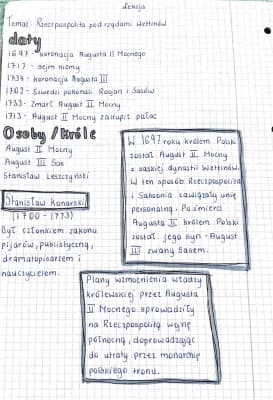 Lekcja
Temat: Rzeczpospolita pod rządami Wettinów
daty
1697 - koronacja Augusta II Mocnego
1717 - sejm niemy
1734 - koronacja Augusta III
1702 - Szwedzi pokonali Rosjan i Sasów
1733 - Zmarł August II Mocny
1713 - August II Mocny zakupił pałac
Osoby/Króle
August II Mocny
August III Sas
Stanisław Leszczyński
Stanisław Konarski
(1700 - 1773)
Był członkiem zakonu
pijarów, publistyczną,
dramatopisarzem i
nauczycielem.
W 1697 roku królem Polski
został August II Mocny
z saskiej dynastii Wettinów.
W ten sposób Rzeczpospolita
i Saksonia zawiązały unię
personalną. Po śmierci
Augusta II królem Polski
został jego syn - August
III zwany Sasem.
Plany wzmocnienia władzy
królewskiej przez Augusta
II Mocnego sprowadziły
na Rzeczpospolitą wojnę
północną, doprowadzając
do utraty przez monarchię
polskiego tronu.